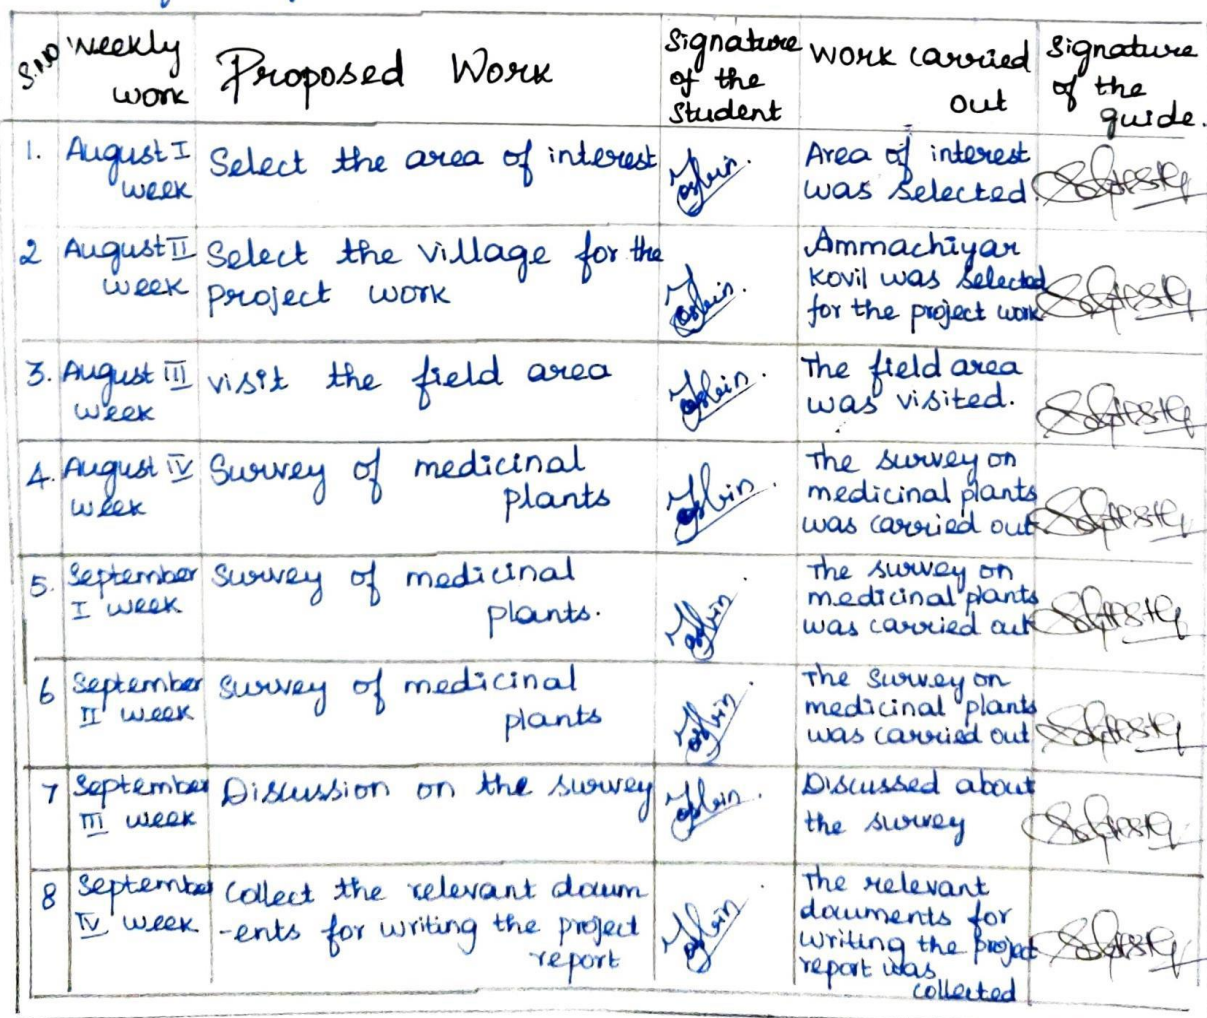 S.NO Weekly work Proposed Work Signature of the Student Work carried out Signature of the guide.
1. August I week Select the area of interest Area of interest was selected.
2 August II week Select the village for the project work Ammachiyar Kovil was selected for the project work
3. August III week visit the field area The field area was visited.
4. August IV week Survey of medicinal plants The survey on medicinal plants was carried out
5. September I week Survey of medicinal plants. The survey on medicinal plants was carried out
6 September II week Survey of medicinal plants The survey on medicinal plants was carried out
7 September III week Discussion on the survey Discussed about the survey
8 September IV week collect the relevant docum -ents for writing the project report The relevant documents for writing the project report was collected